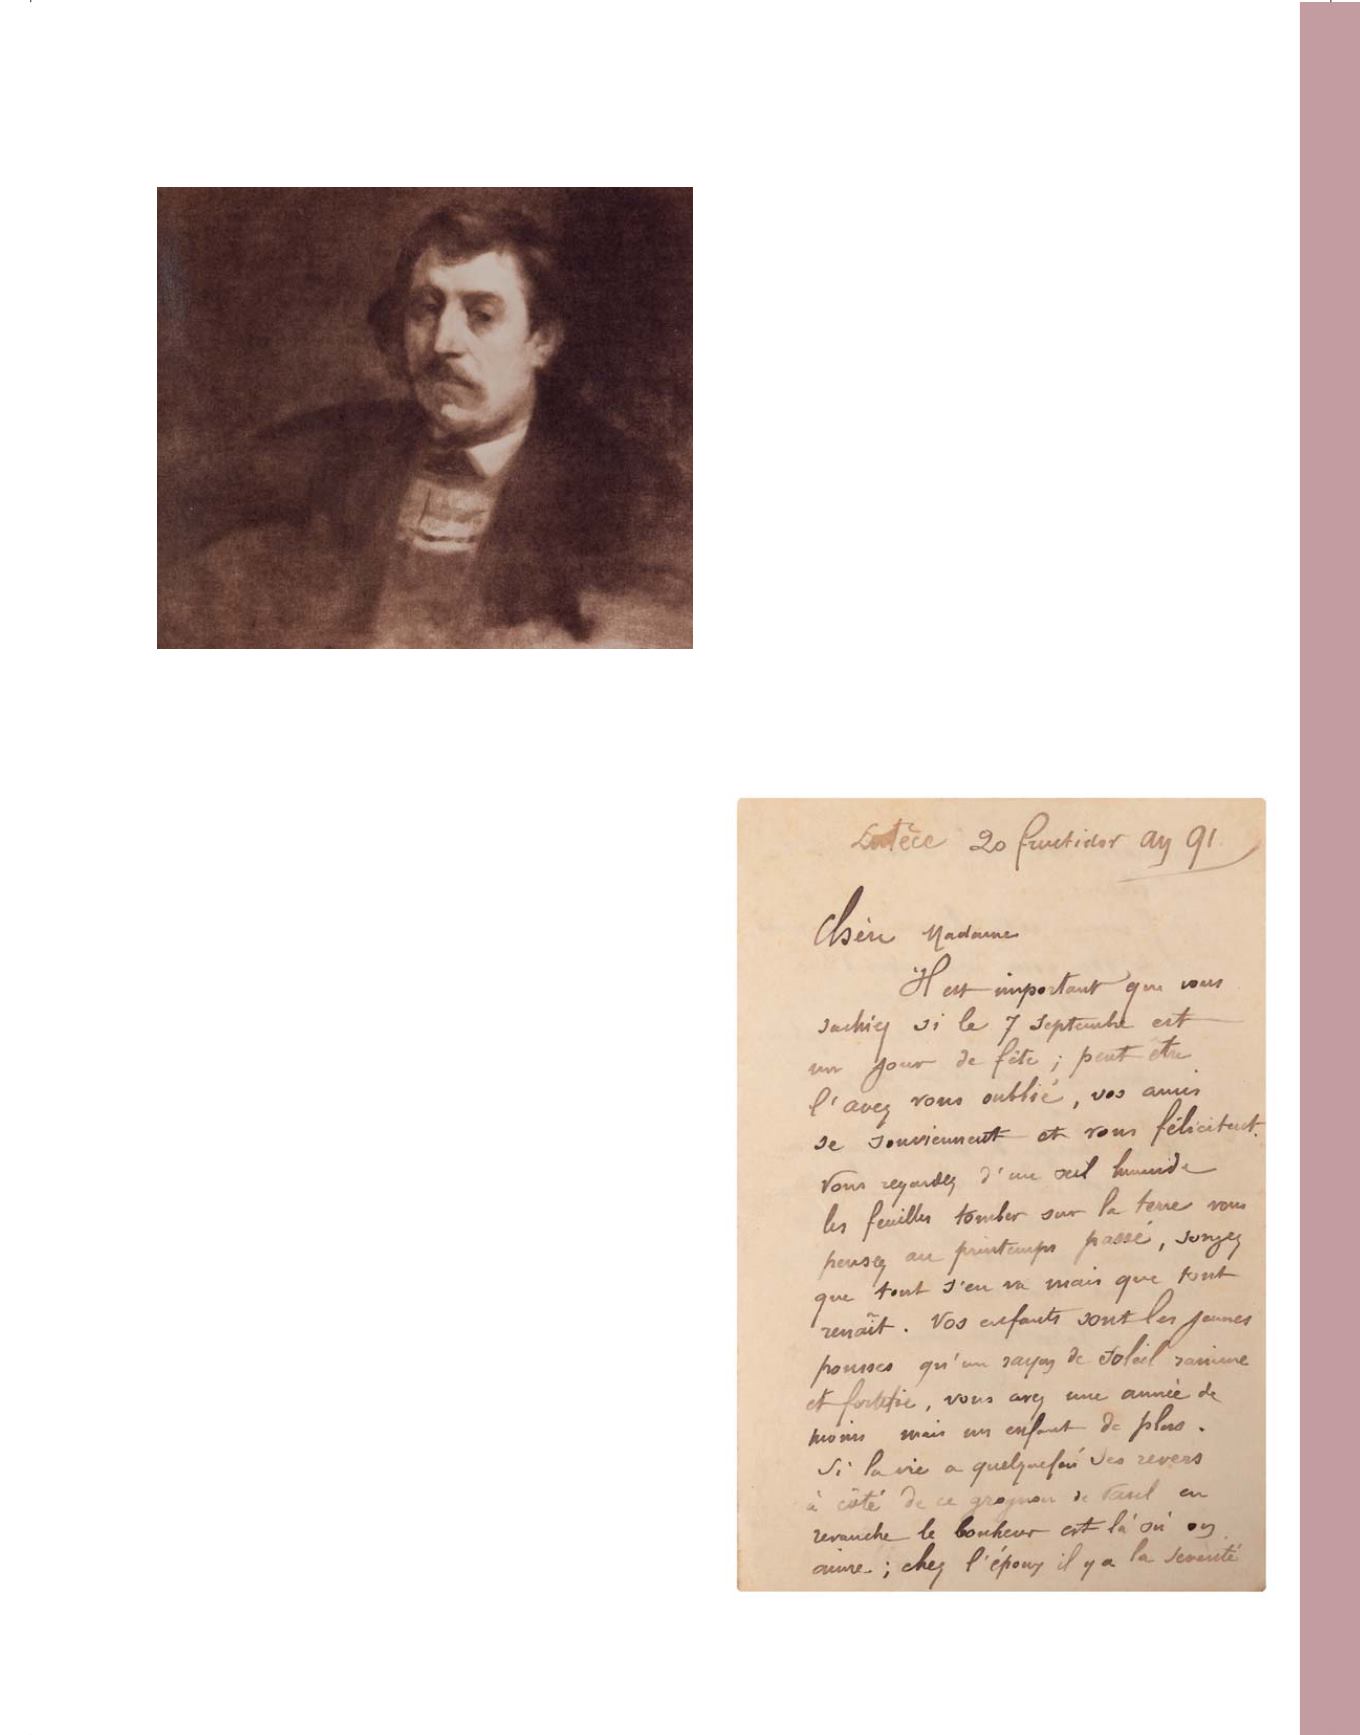 Lutèce 20 fructidor an 91
Chère Madame
Il est important que vous
sachiez si le 7 Septembre est
un jour de fête ; peut être
l'avez vous oublié, vos amis
se souviennent et vous félicitent.
Vous regardez d'un œil humide
les feuilles tomber sur la terre vous
pensez au printemps passé, songez
que tout s'en va mais que tout
renaît. Vos enfants sont les jeunes
pousses qu'un rayon de soleil ranime
et fortifie, vous avez une année de
moins mais un enfant de plus.
Si la vie a quelquefois des revers
à côté de ce grognon de Paul en
revanche le bonheur est là où on
aime ; chez l'époux il y a la